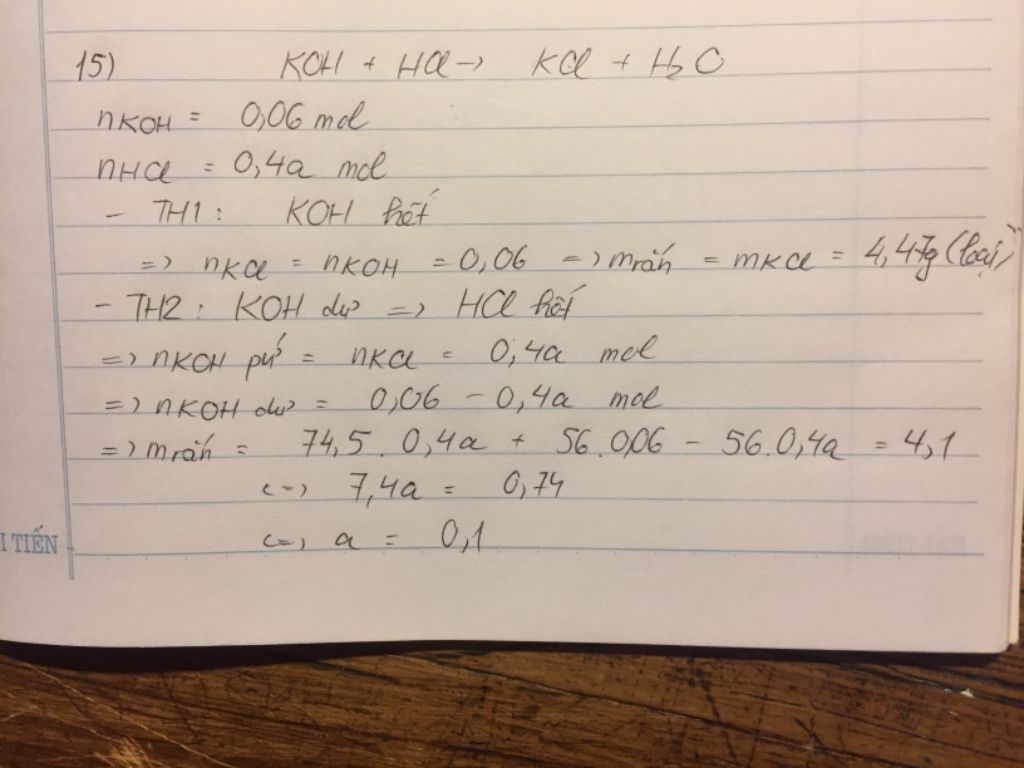 15) KOH + HCl → KCl + H₂O
nKOH = 0,06 mol
nHCl = 0,4a mol
- TH1 : KOH hết
=> nKCl = nKOH = 0,06 => mrắn = mKCl = 4,47g (loại)
- TH2 : KOH dư => HCl hết
=> nKOH pứ = nKCl = 0,4a mol
=> nKOH dư = 0,06 - 0,4a mol
=> mrắn = 74,5 . 0,4a + 56 . 0,06 - 56 . 0,4a = 4,1
<=> 7,4a = 0,74
<=> a = 0,1
I TIẾN